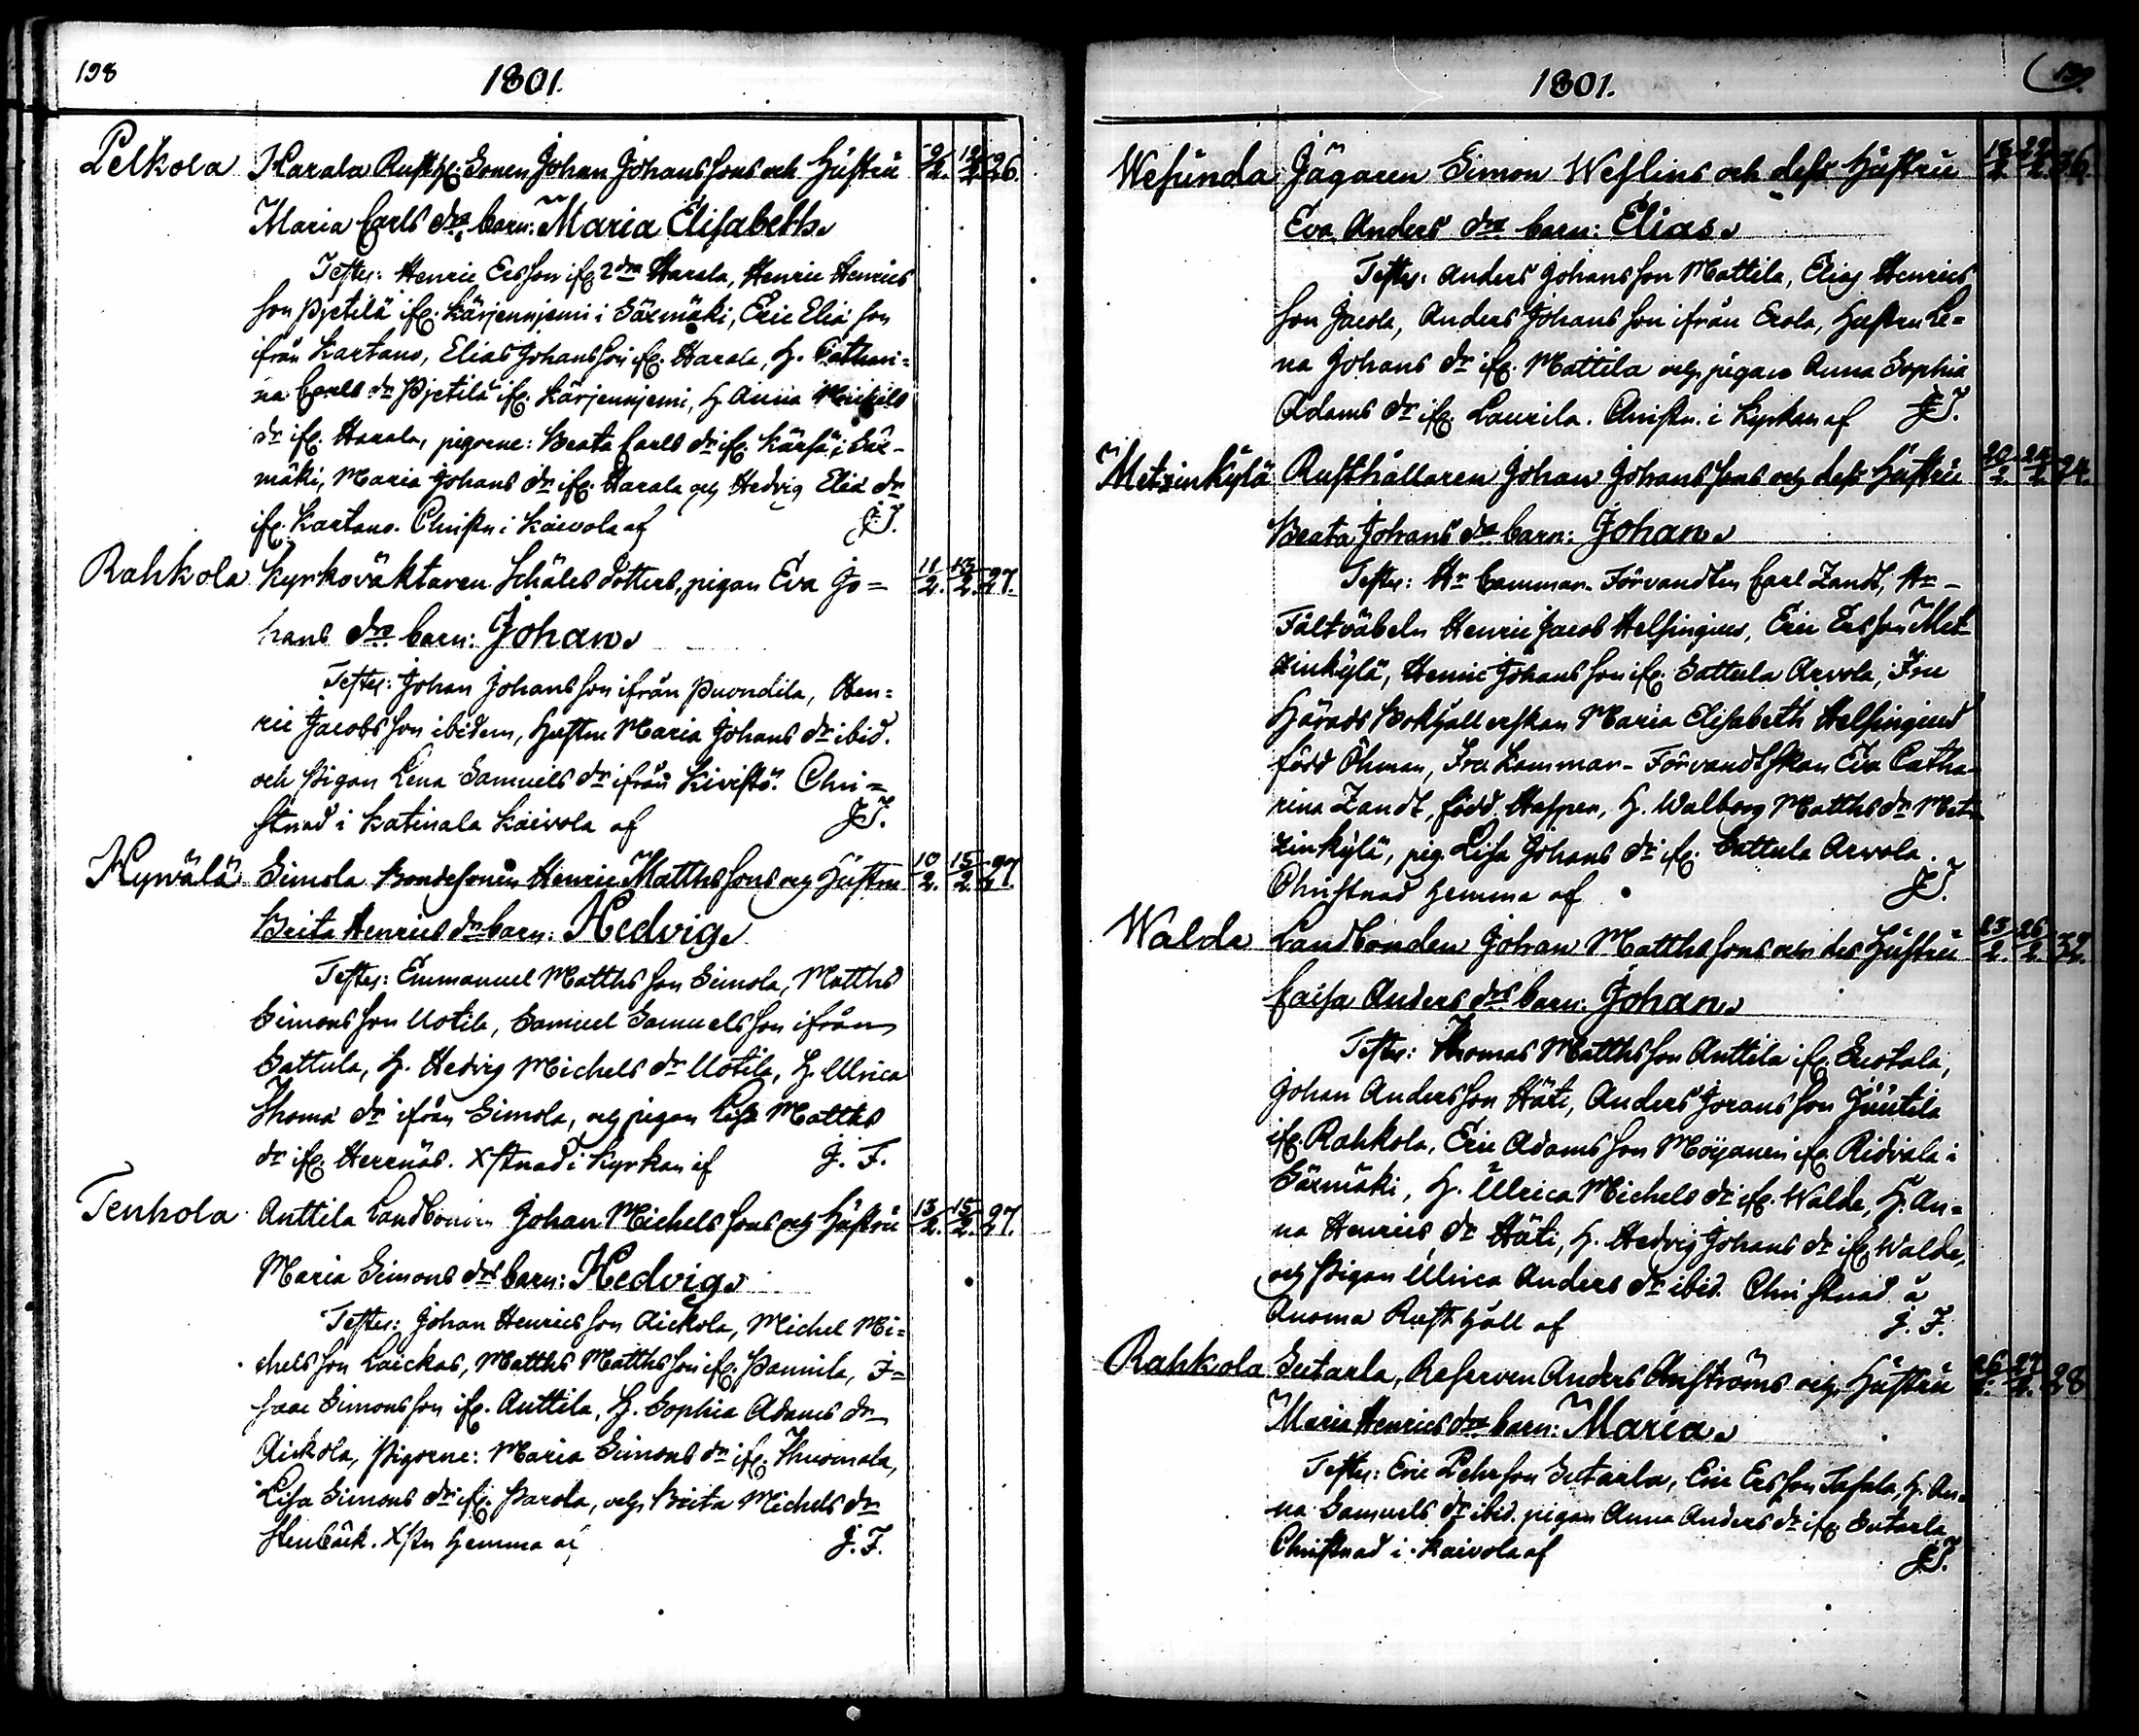 198
1801.
Pelkola Harala Rusth: Sonen Johan Johans sons och Hustru 9/2. 12/2. 26.
Maria Carls drs barn: Maria Elisabeth.
Testes: Henric Ersson ifr. 2dra Harala, Henric Henrics
son Pjetilä ifr. Kärjenniemi i Säxmäki, Eric Eliæ son
ifrån Kartano, Elias Johansson ifr. Harala, H. Cathari=
na Carls dr Pjetilä ifr. Kärjenniemi, H. Anna Michels
dr ifr. Harala, pigorne: Beata Carls dr ifr. Kärsä i Säx-
mäki, Maria Johans dr ifr. Harala och Hedvig Eliæ dr
ifr. Kartano. Christn i Kaivola af J. F.
Rahkola Kyrkoväktaren Schäles dotters, pigan Eva Jo= 11/2. 13/2. 27.
hans drs barn: Johan.
Testes: Johan Johansson ifrån Puondila, Hen=
ric Jacobsson ibidem, Hustru Maria Johans dr ibid.
och Pigan Lena Samuels dr ifrån Kivistö. Chri=
stnad i Katinala Kaivola af J. F.
Hyvälä Simola Bondesonen Henric Matths sons och Hustru 10/2. 15/2. 27.
Brita Henrics drs barn: Hedvig.
Testes: Emmanuel Matths son Simola, Matths
Simonsson Uotila, Samuel Samuelsson ifrån
Sattula, H. Hedvig Michels dr Uotila, H. Ulrica
Thomæ dr ifrån Simola, och pigan Lisa Matths
dr ifr. Herrnäs. Xstnad i Kyrkan af J. F.
Tenhola Anttila Landbonden Johan Michels sons och Hustru 13/2. 15/2. 27.
Maria Simons drs barn: Hedvig.
Testes: Johan Henricsson Aickola, Michel Mi=
chelsson Laickas, Matths Matthsson ifr. Pannila, I=
saac Simonsson ifr. Anttila, H. Sophia Adams dr
Aickola, Pigorne: Maria Simons dr ifr. Thuomala,
Lisa Simons dr ifr. Parola, och Brita Michels dr
Stenbäck. Xstn hemma af J. F.
1801.
199.
Wesunda Jägaren Simon Weslins och dess Hustru 18/2. 22/2. 36.
Eva Anders drs barn: Elias.
Testes: Anders Johansson Mattila, Elias Henrics
son Jacola, Anders Johansson ifrån Erola, Hustru Le=
na Johans dr ifr. Mattila och pigan Anna Sophia
Adams dr ifr. Laurila. Christn. i Kyrkan af J. F.
Metzinkylä Rusthållaren Johan Johans sons och dess Hustru 20/2. 24/2. 24.
Beata Johans drs barn: Johan.
Testes: Hr Cammar-Förvandten Carl Zandt, Hr
Fältväbeln Henric Jacob Helsingius, Eric Ersson Met-
zinkylä, Henric Johansson ifr. Sattula Arvola, Fru
Härads Bokhållerskan Maria Elisabeth Helsingius
född Öhman, Fru Kammar-Förvandtskan Eva Catha-
rina Zandt, född Happen, H. Walborg Matths dr Met-
zinkylä, pig. Lisa Johans dr ifr. Sattula Arvola.
Christnad hemma af J. F.
Walde Landbonden Johan Matths sons och des Hustru 23/2. 26/2. 32.
Caisa Anders drs barn: Johan.
Testes: Thomas Matthsson Anttila ifr. Eustala,
Johan Andersson Häti, Anders Joransson Juutila
ifr. Rahkola, Eric Adamsson Möyanen ifr. Ridvala i
Säxmäki, H. Ulrica Michels dr ifr. Walde, H. An=
na Henrics dr Häti, H. Hedvig Johans dr ifr. Walde,
och Pigan Ulrica Anders dr ibid. Christnad å
Anoma Rusthåll af J. F.
Rahkola Sutarla, Reserven Anders Anströms och Hustru 26/2. 27/2. 28
Maria Henrics drs barn: Maria.
Testes: Eric Pehrson Sutarla, Eric Ersson Tasala, H. An-
na Samuels dr ibid. pigan Anna Anders dr ifr. Sutarla
Christnad i Kaivola af J. F.